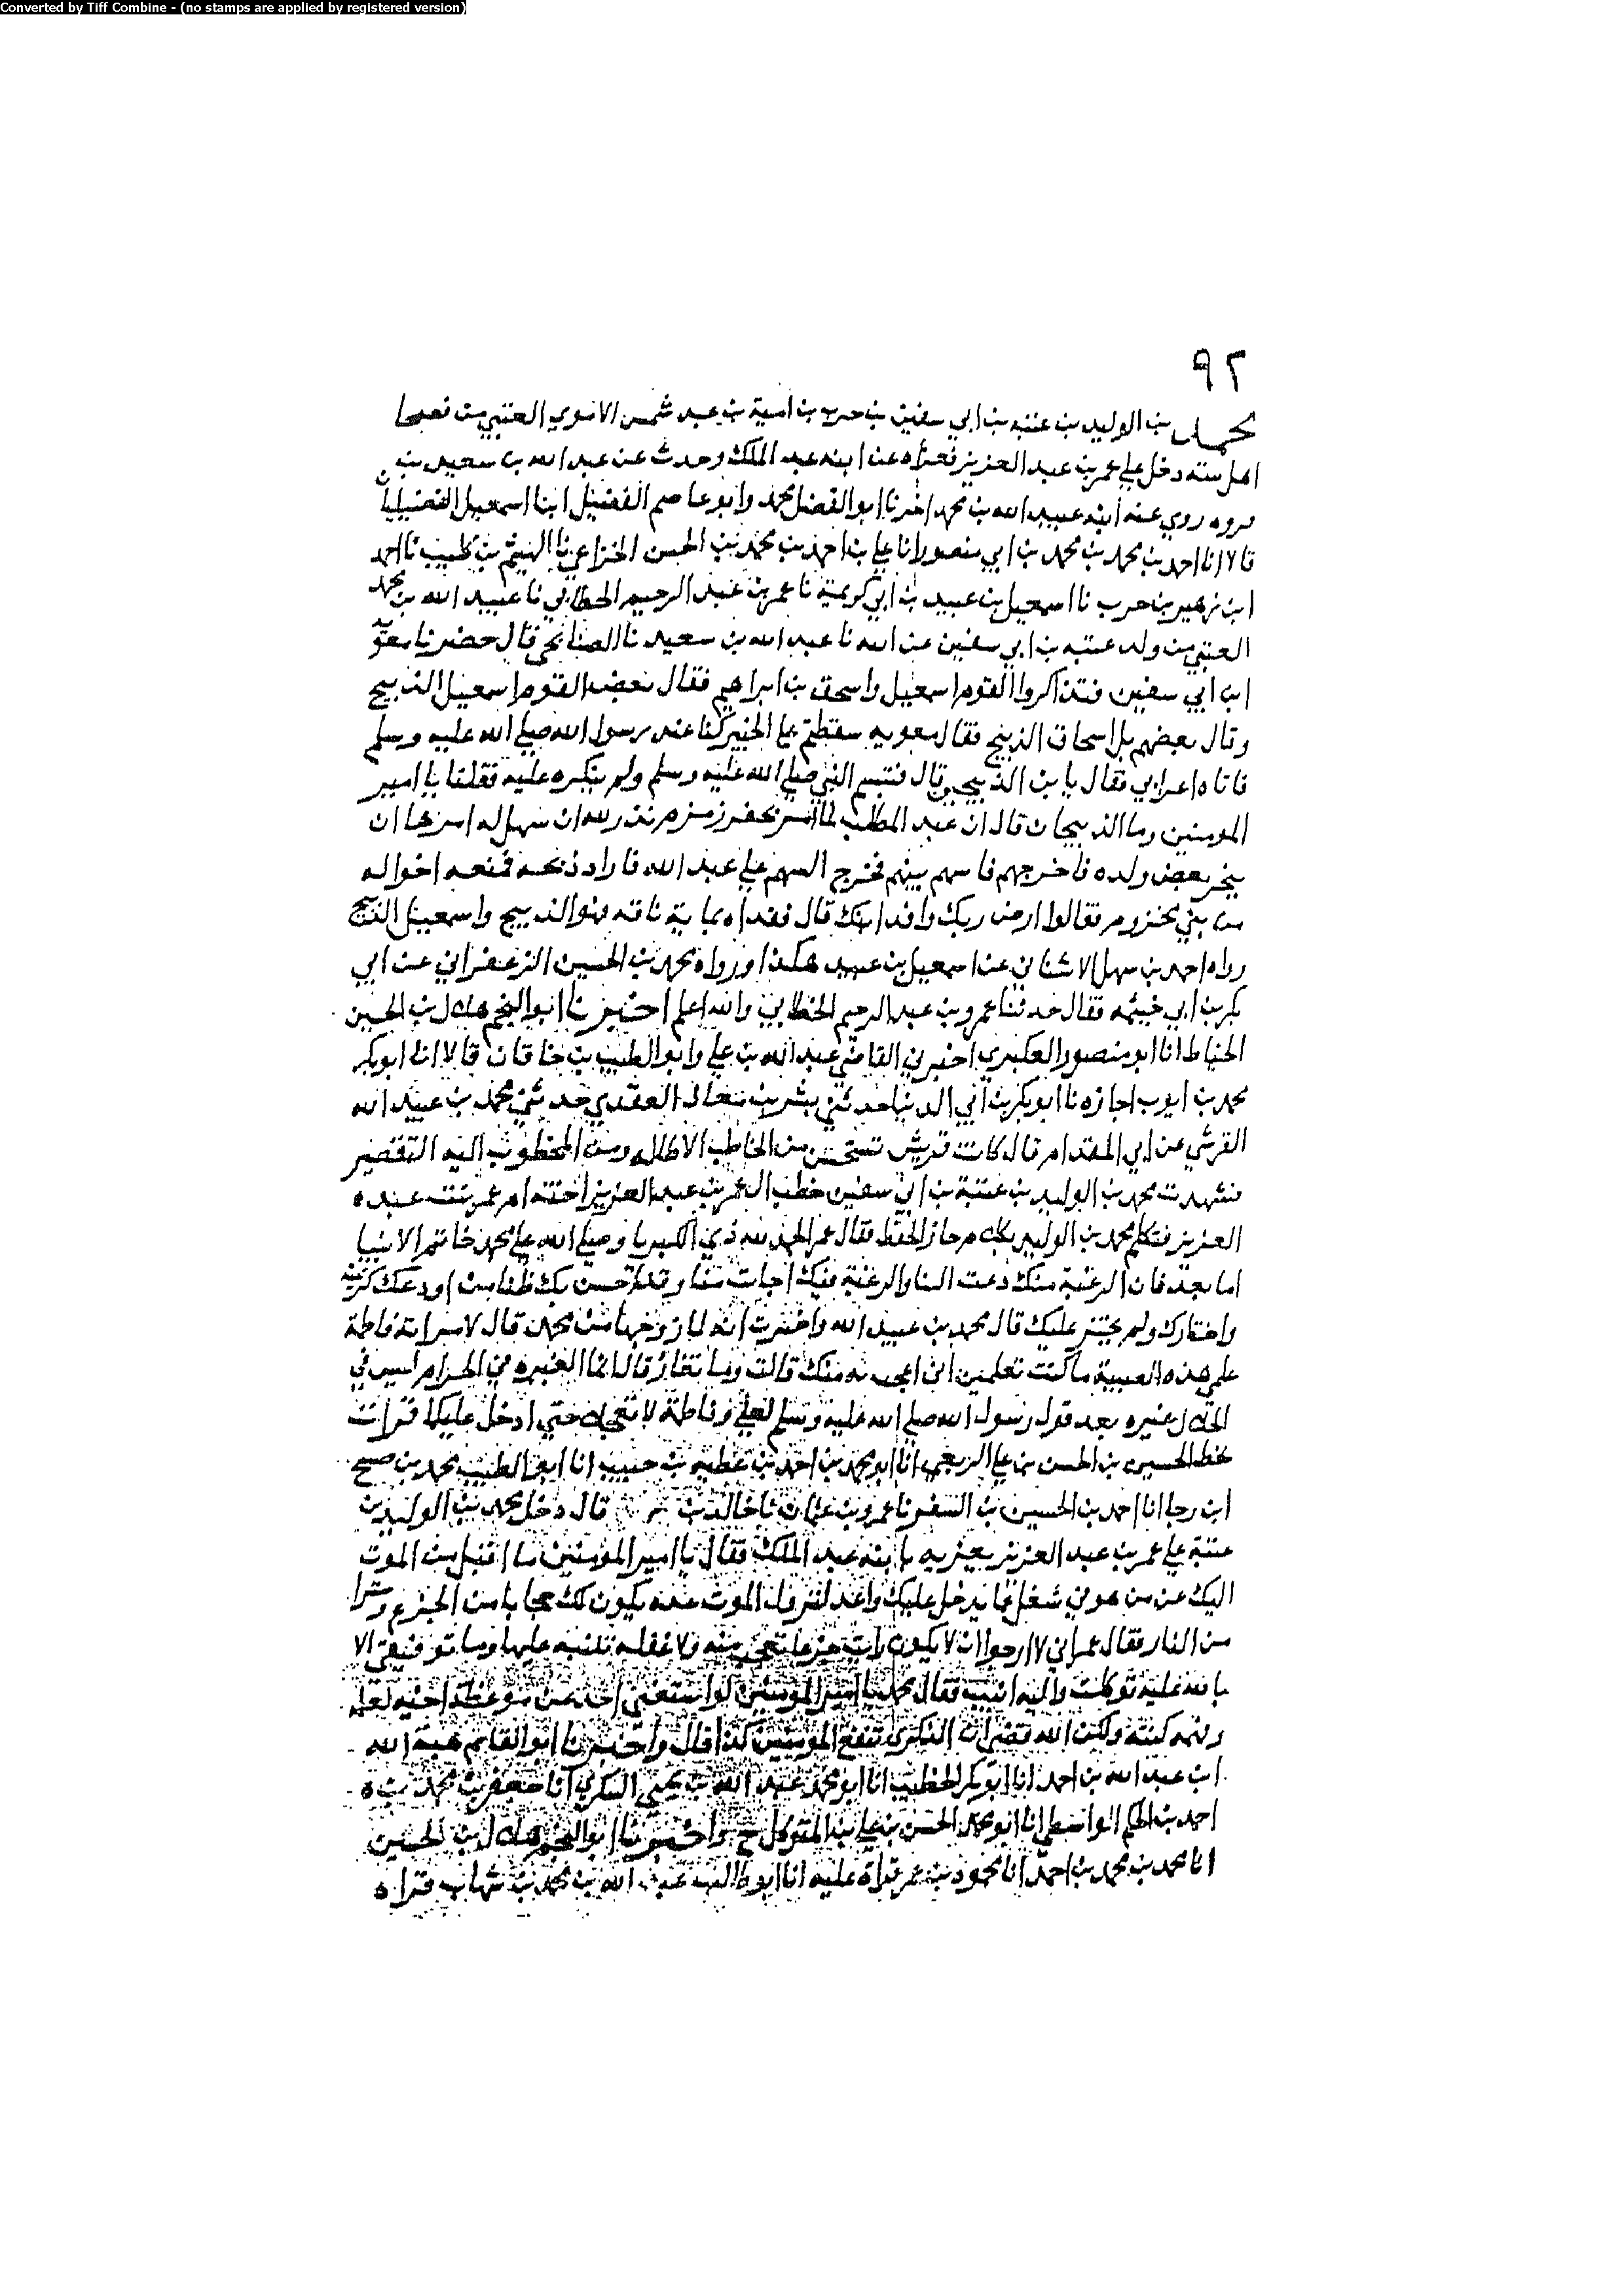 Converted by Tiff Combine - (no stamps are applied by registered version)
٩٢
محمد بن الوليد بن عتبه بن ابي سفين بن حرب بن امية بن عبد شمس الاموي العتبي من فصحا
اهل سته دخل علي عمر بن عبد العزيز فعزاه عن ابنه عبد الملك وحدث عن عبد الله بن سعيد بن
روي عنه ابنه عبيد الله بن محمد اخبرنا ابو الفضل محمد وابو عاصم الفضيل ابنا اسمعيل الفضيليان
قالا انا احمد بن محمد بن محمد بن ابي منصور انا علي بن احمد بن محمد بن الحسن الخزاعي نا الهيثم بن كليب نا احمد
ابن زهير بن حرب نا اسمعيل بن عبيد بن ابي كريمة نا عمر بن عبد الرحيم الخطابي نا عبيد الله بن محمد
العتبي من ولد عتبه بن ابي سفين عن ابيه نا عبد الله بن سعيد نا الصنابحي قال حضرنا معوية
ابن ابي سفين فتذاكروا القوم اسمعيل واسحق بن ابراهيم فقال بعض القوم اسمعيل الذبيح
وقال بعضهم بل اسحاق الذبيح فقال معويه سقطتم علي الخبير كنا عند رسول الله صلي الله عليه وسلم
فاتاه اعرابي فقال يا بن الذبيحين قال فتبسم النبي صلي الله عليه وسلم ولم ينكره عليه فقلنا يا امير
المومنين وما الذبيحان قال ان عبد المطلب لما امر بحفر زمزم نذر لله ان سهل له امرها ان
ينحر بعض ولده فاخرجهم فاسهم بينهم فخرج السهم علي عبد الله فاراد ذبحه فمنعه اخواله
من بني مخزوم فقالوا ارض ربك وافد ابنك قال ففداه بماية ناقه فهو الذبيح واسمعيل الذبيح
رواه احمد بن سهل الاشناني عن اسمعيل بن عبيد هكذا ورواه محمد بن الحسين الزعفراني عن ابي
بكر بن ابي خيثمه فقال حدثنا عمرو بن عبد الرحيم الخطابي والله اعلم اخبرنا ابو النجم هلال بن الحسين
الخياط انا ابو منصور العكبري اخبرني القاضي عبد الله بن علي وابو الطيب بن خاقان قالا انا ابو بكر
محمد بن ايوب اجازه نا ابو بكر بن ابي الدنيا حدثني بشر بن معاذ العقدي حدثني محمد بن عبيد الله
القرشي عن ابي المقدام قال كانت قريش تستحسن من الخاطب الاطاله ومن المخطوب اليه التقصير
فشهدت محمد بن الوليد بن عتبة بن ابي سفين خطب الي عمر بن عبد العزيز اخته ام عمر بنت عبد
العزيز فتكلم محمد بن الوليد بكلام جاز الحفظ فقال عمر الحمد لله ذي الكبريا وصلي الله علي محمد خاتم الانبيا
اما بعد فان الرغبة منك دعت الينا والرغبة فيك اجابت منا وقد احسن بك ظنا من اودعك كريمته
واختارك ولم يختر عليك قال محمد بن عبيد الله واخبرت انه لما زوجها من محمد قال لامراته فاطمة
علمي هذه الصبية ما كنت تعلمين اني اعجب به منك قالت وما تغار قال انما الغيره في الحرام ليس في
الحلال غيره بعد قول رسول الله صلي الله عليه وسلم لعلي وفاطمة لا تعجلا حتي ادخل عليكما قرات
بخط الحسين بن الحسن بن علي الربعي انا ابو محمد بن احمد بن عطيه بن حبيب انا ابو الطيب محمد بن صبيح
ابن رجا انا احمد بن الحسين بن السفر نا عمرو بن عثمان نا خالد بن قال دخل محمد بن الوليد بن
عتبة علي عمر بن عبد العزيز يعزيه بابنه عبد الملك فقال يا امير المؤمنين ما اقبل من الموت
اليك عن من هو في شغل مما يدخل عليك واعد لنزول الموت عده يكون لك حجابا من الجزع وسترا
من النار فقال عمر اني لارجوا ان لا يكون رايت جزعا تعجب منه ولا غفله تنبه عليها وما توفيقي الا
بالله عليه توكلت واليه انيب فقال محمد يا امير المومنين لو استغني احد عن موعظه اخيه لعلم
وفهم كنته ولكن الله قضي ان الذكرى تنفع المؤمنين كذا قال واخبرنا ابو القاسم هبة الله
ابن عبد الله بن احمد انا ابو بكر الخطيب انا ابو محمد عبد الله بن يحيي السكري انا جعفر بن محمد بن
احمد بن الحكم الواسطي انا ابو محمد الحسن بن علي بن المتوكل ح واخبرنا ابو النجم هلال بن الحسين
انا محمد بن محمد بن احمد انا محمود بن عمر قراة عليه انا ابو طالب عبد الله بن محمد بن شهاب قراه